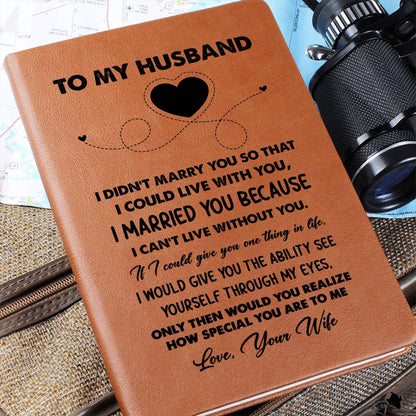 TO MY HUSBAND
I DIDN'T MARRY YOU SO THAT
I COULD LIVE WITH YOU,
I MARRIED YOU BECAUSE
I CAN'T LIVE WITHOUT YOU.
If I could give you one thing in life,
I WOULD GIVE YOU THE ABILITY SEE
YOURSELF THROUGH MY EYES,
ONLY THEN WOULD YOU REALIZE
HOW SPECIAL YOU ARE TO ME
Love, Your Wife